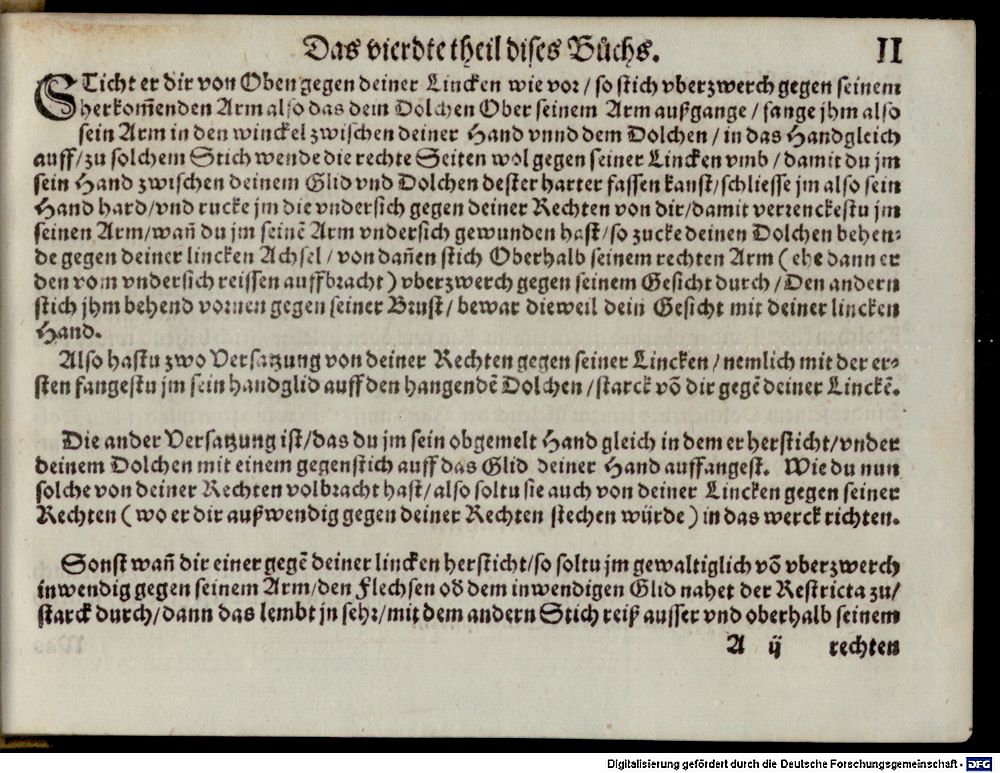 Das vierdte theil dises Bůchs. II
STicht er dir von Oben gegen deiner Lincken wie vor / so stich vberzwerch gegen seinem
herkom̃enden Arm also das dein Dolchen Ober seinem Arm außgange / fange jhm also
sein Arm in den winckel zwischen deiner Hand vnnd dem Dolchen / in das Handgleich
auff / zu solchem Stich wende die rechte Seiten wol gegen seiner Lincken vmb / damit du jm
sein Hand zwischen deinem Glid vnd Dolchen dester harter fassen kanst / schliesse jm also sein
Hand hard / vnd rucke jm die vndersich gegen deiner Rechten von dir / damit verrenckestu jm
seinen Arm / wañ du jm seinē Arm vndersich gewunden hast / so zucke deinen Dolchen behen-
de gegen deiner lincken Achsel / von dañen stich Oberhalb seinem rechten Arm ( ehe dann er
den vom vndersich reissen auffbracht ) vberzwerch gegen seinem Gesicht durch / Den andern
stich jhm behend vornen gegen seiner Brust / bewar dieweil dein Gesicht mit deiner lincken
Hand.
Also hastu zwo Versatzung von deiner Rechten gegen seiner Lincken / nemlich mit der er-
sten fangestu jm sein handglid auff den hangendē Dolchen / starck võ dir gegē deiner Linckē.
Die ander Versatzung ist / das du jm sein obgemelt Hand gleich in dem er hersticht / vnder
deinem Dolchen mit einem gegenstich auff das Glid deiner Hand auffangest. Wie du nun
solche von deiner Rechten volbracht hast / also soltu sie auch von deiner Lincken gegen seiner
Rechten ( wo er dir außwendig gegen deiner Rechten stechen würde ) in das werck richten.
Sonst wañ dir einer gegē deiner lincken hersticht / so soltu jm gewaltiglich võ vberzwerch
inwendig gegen seinem Arm / den Flechsen oð dem inwendigen Glid nahet der Restricta zu /
starck durch / dann das lembt jn sehr / mit dem andern Stich reiß ausser vnd oberhalb seinem
A ij rechten
Digitalisierung gefördert durch die Deutsche Forschungsgemeinschaft - DFG